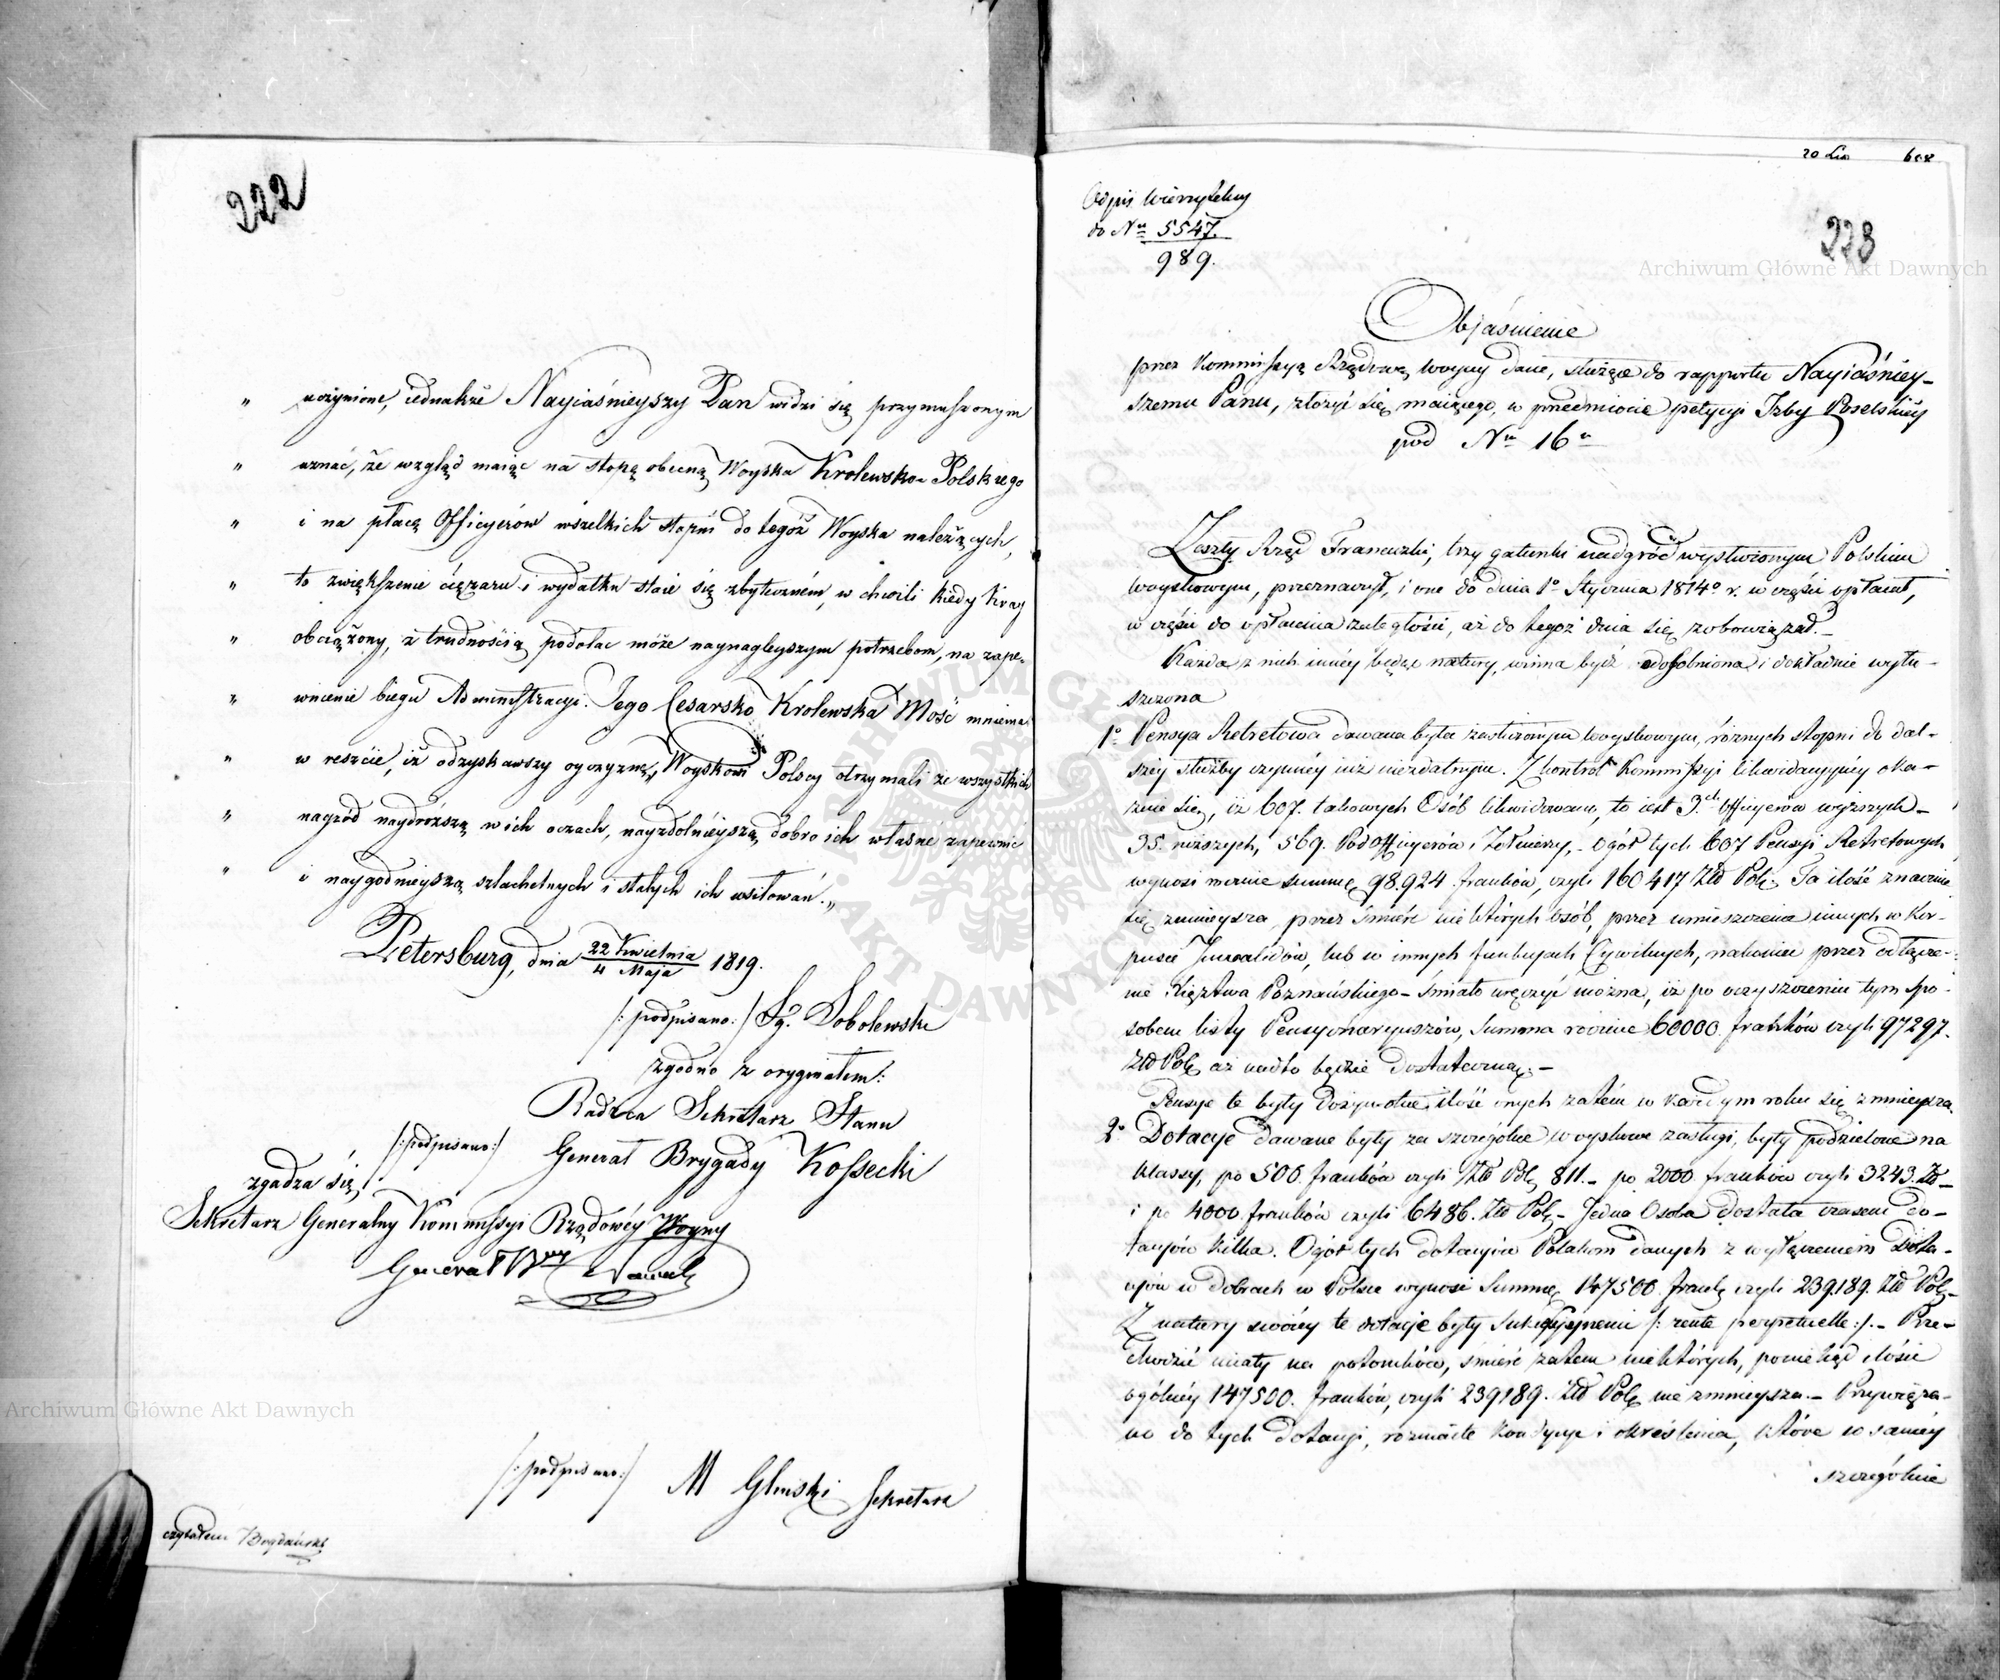 222
„ uczynione, iednakże Nayiaśnieyszy Pan widzi się przymuszonym
„ uznać, że wzgląd maiąc na stopę obecną Woyska Krolewsko-Polskiego
„ i na płacę Officyerów wszelkich stopni do tegóż Woyska należących,
„ to zwiększenie ciężaru i wydatku staie się zbyteczném, w chwili kiedy Kray
„ obciążony, z trudnością podołać może naynagleyszym potrzebom, na zape-
„ wnienie biegu Administracyi. Jego Cesarsko Krolewska Mość mniema
„ w reszcie, iż odzyskawszy oyczyznę, Woyskowi Polscy otrzymali ze wszystkich
„ nagród naydroższą w ich oczach, nayzdolnieyszą dobro ich własne zapewnić
„ i naygodnieyszą szlachetnych i stałych ich usiłowań.„
Petersburg, dnia 22 Kwietnia / 4 Maja 1819.
/: podpisano :/ Ig. Sobolewski
zgodno z oryginałem:
Radzca Sekretarz Stanu
/:podpisano:/ Generał Brygady Kossecki
zgadza się
Sekretarz Generalny Kommissyi Rządowéy Woyny
Generał
/:podpisano:/ M Gliński Sekretarz
czytałem Bogdański
20 Lio 608
Odpis Wierzytelny
do Nru 5547.
989.
223
Objaśnienie
przez Kommissyą Rządową woyny dane, służące do rapportu Nayiaśniey-
szemu Panu, złożyć się maiącego, w przedmiocie petycyi Izby Poselskiéy
pod Nrm 16m
Zeszły Rząd Francuzki, trzy gatunki nadgród wysłużonym Polskim
woyskowym, przeznaczył, i one do dnia 1o Stycznia 1814o r. w części opłacał,
w części do opłacenia zaległości, aż do tegoż dnia się zobowiązał.-
Każda z nich innéy będąc natury, winna być odosobniona i dokładnie wytłu-
szczona
1o Pensya Retretowa dawana była zasłużonym woyskowym, różnych stopni do dal-
széy służby czynnéy iuż niezdatnym. Z kontroll Kommissyi likwidacyinéy oka-
zuie się, iż 607. takowych Osób likwidowano, to iest 3.ch officyerów wyższych-
35. niższych, 569. Podofficyerów i Żołnierzy,- Ogół tych 607 Pensyi Retretowych
wynosi rocznie summę 98.924 franków, czyli 160417 Złt Pol. Ta ilość znacznie
się zmnieysza, przez śmierć niektórych osób, przez umieszczenia innych w Kor-
pusie Inwalidów, lub w innych funkcyach Cywilnych, nakoniec przez odłącze-
nie Xięztwa Poznańskiego- Śmiało ręczyć można, iż po oczyszczeniu tym spo-
sobem listy Pensyonaryuszów, Summa roczna 60000. franków czyli 97297.
Złt Pol. aż nadto będzie dostateczną.-
Pensye te były dożywotnie, ilość onych zatém w każdym roku się zmnieysza.
2o Dotacye dawane były za szczególne woyskowe zasługi, były podzielone na
klassy, po 500. franków czyli Złt Pol. 811.- po 2000. franków czyli 3243. Zł-
i po 4000. franków czyli 6486. Złt Pol.- Jedna Osoba dostała czasem do-
tacyów kilka. Ogół tych dotacyów Polakom danych z wyłączeniem Dota-
cyów w dobrach w Polsce wynosi Summę 147500. frank. czyli 239.189. Złt Pol.-
Z natury swoiéy te dotacye były /: rente perpetuelle :/.- Prze-
chodzić miały na potomków, śmierć zatem niektórych, ponieważ ilości
ogólnéy 147500. franków, czyli 239189. Złt Pol. nie zmnieysza.- Przywiąza-
no do tych dotacyi, rozmaite kondycye i określenia, które w saméy
szczególnie
Archiwum Główne Akt Dawnych
Archiwum Główne Akt Dawnych
ARCHIWUM GŁÓWNE AKT DAWNYCH